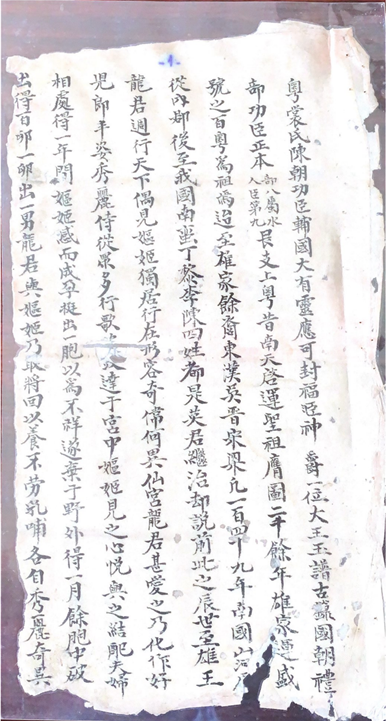 粵裳氏陳朝功臣輔國大有靈應可封福旺神爵一位大王玉譜古籙國朝禮
部功臣正本部八屬水入臣第九艮支上粵昔南天啓運聖祖膺圖二千餘年雄家運盛
號之百粵爲祖焉迨至雄家餘裔東漢吳晉宋梁凡一百四十九年南國山河
從內鄉後至我國南出丁黎李陳四姓都是英君繼治却說前此之辰世至雄王
龍君週行天下偶見嫗姬獨居行在形容奇偉何異仙宮龍君甚愛之乃化作好
児郎丰姿秀麗侍從衆多行歌達于宮中嫗姬見之心悅與之結配夫婦
相處得一年間嫗姬感而成孕挺出一胞以爲不祥遂棄于野外得一月餘胞中破
出得百卵一卵出一男龍君與嫗姬乃取將回以養不勞乳哺各自秀麗奇異